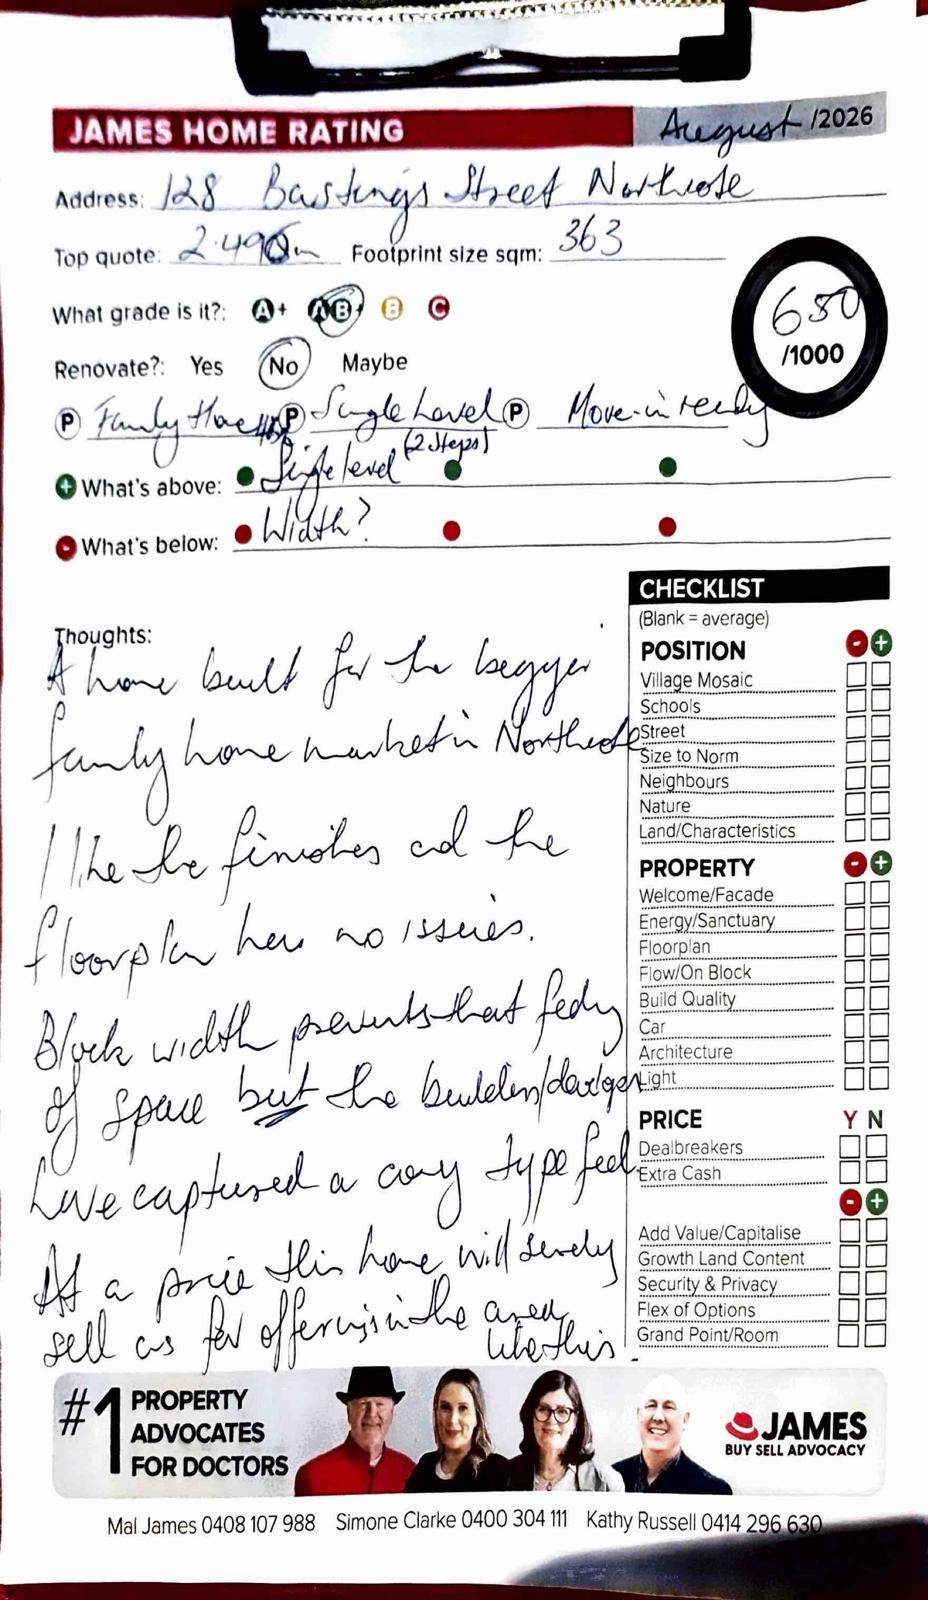 JAMES HOME RATING August /2026
Address: 128 Bastings Street Northcote
Top quote: 2.490m Footprint size sqm: 363
What grade is it?: A+ AB+ B C
650
/1000
Renovate?: Yes No Maybe
P Family Home P Single Level P Move-in ready
(2 steps)
+ What's above: Single level
- What's below: Width?
CHECKLIST
(Blank = average)
POSITION - +
Village Mosaic
Schools
Street
Size to Norm
Neighbours
Nature
Land/Characteristics
PROPERTY - +
Welcome/Facade
Energy/Sanctuary
Floorplan
Flow/On Block
Build Quality
Car
Architecture
Light
PRICE Y N
Dealbreakers
Extra Cash
- +
Add Value/Capitalise
Growth Land Content
Security & Privacy
Flex of Options
Grand Point/Room
Thoughts:
A home built for the bigger
family home market in Northcote
I like the finishes and the
floorplan has no issues.
Block width prevents that
of space but the builders/
have captured a type feel
At a price this home will
sell as few offerings in the area
like this.
#1 PROPERTY
ADVOCATES
FOR DOCTORS
JAMES
BUY SELL ADVOCACY
Mal James 0408 107 988 Simone Clarke 0400 304 111 Kathy Russell 0414 296 630